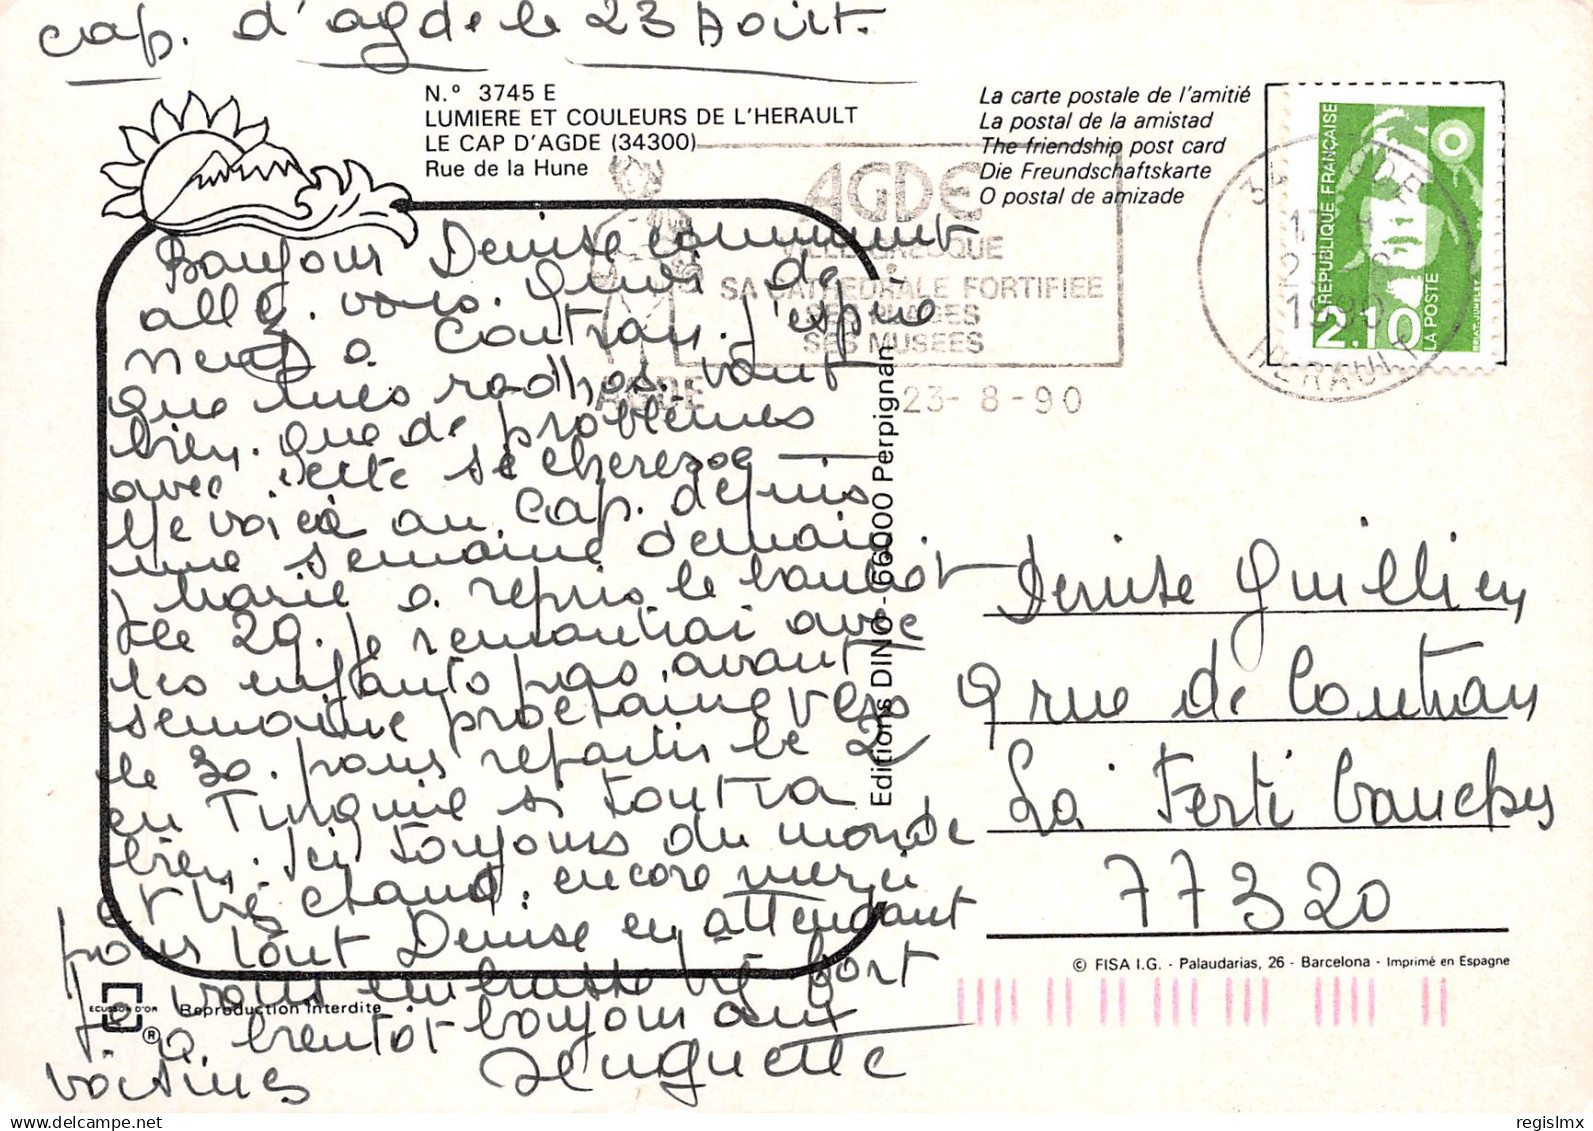 cap. d'agde le 23 Août.
N.º 3745 E
LUMIERE ET COULEURS DE L'HERAULT
LE CAP D'AGDE (34300)
Rue de la Hune
La carte postale de l'amitié
La postal de la amistad
The friendship post card
Die Freundschaftskarte
O postal de amizade
REPUBLIQUE FRANÇAISE
2.10
LA POSTE
BRIAT-JUMELET
AGDE
SA CATHEDRALE FORTIFIEE
SES PLAGES
SES MUSEES
AGDE
23-8-90
1990
HERAULT
Bonjour Denise comment
allez. vous.
neuf a Coutran. J'espère
que mes radios. vont
bien. que de problèmes
avec cette sécheresse
Me voici au Cap. depuis
une semaine demain
Marie a repris le boulot
le 20. je remonterai avec
les enfants pas avant
semaine prochaine vers
le 30. pour repartir le 2
en Turquie si tout va
bien. Ici toujours du monde
et très chaud. encore merci
pour tout Denise en attendant
je vous embrasse très fort
a bientôt bonjour aux
voisines Huguette
Denise Guillien
9 rue de Coutran
La Ferté Gaucher
77320
Editions DINO - 66000 Perpignan
© FISA I.G. - Palaudarias, 26 - Barcelona - Imprimé en Espagne
ECUSSON D'OR
®
Reproduction interdite
regislmx